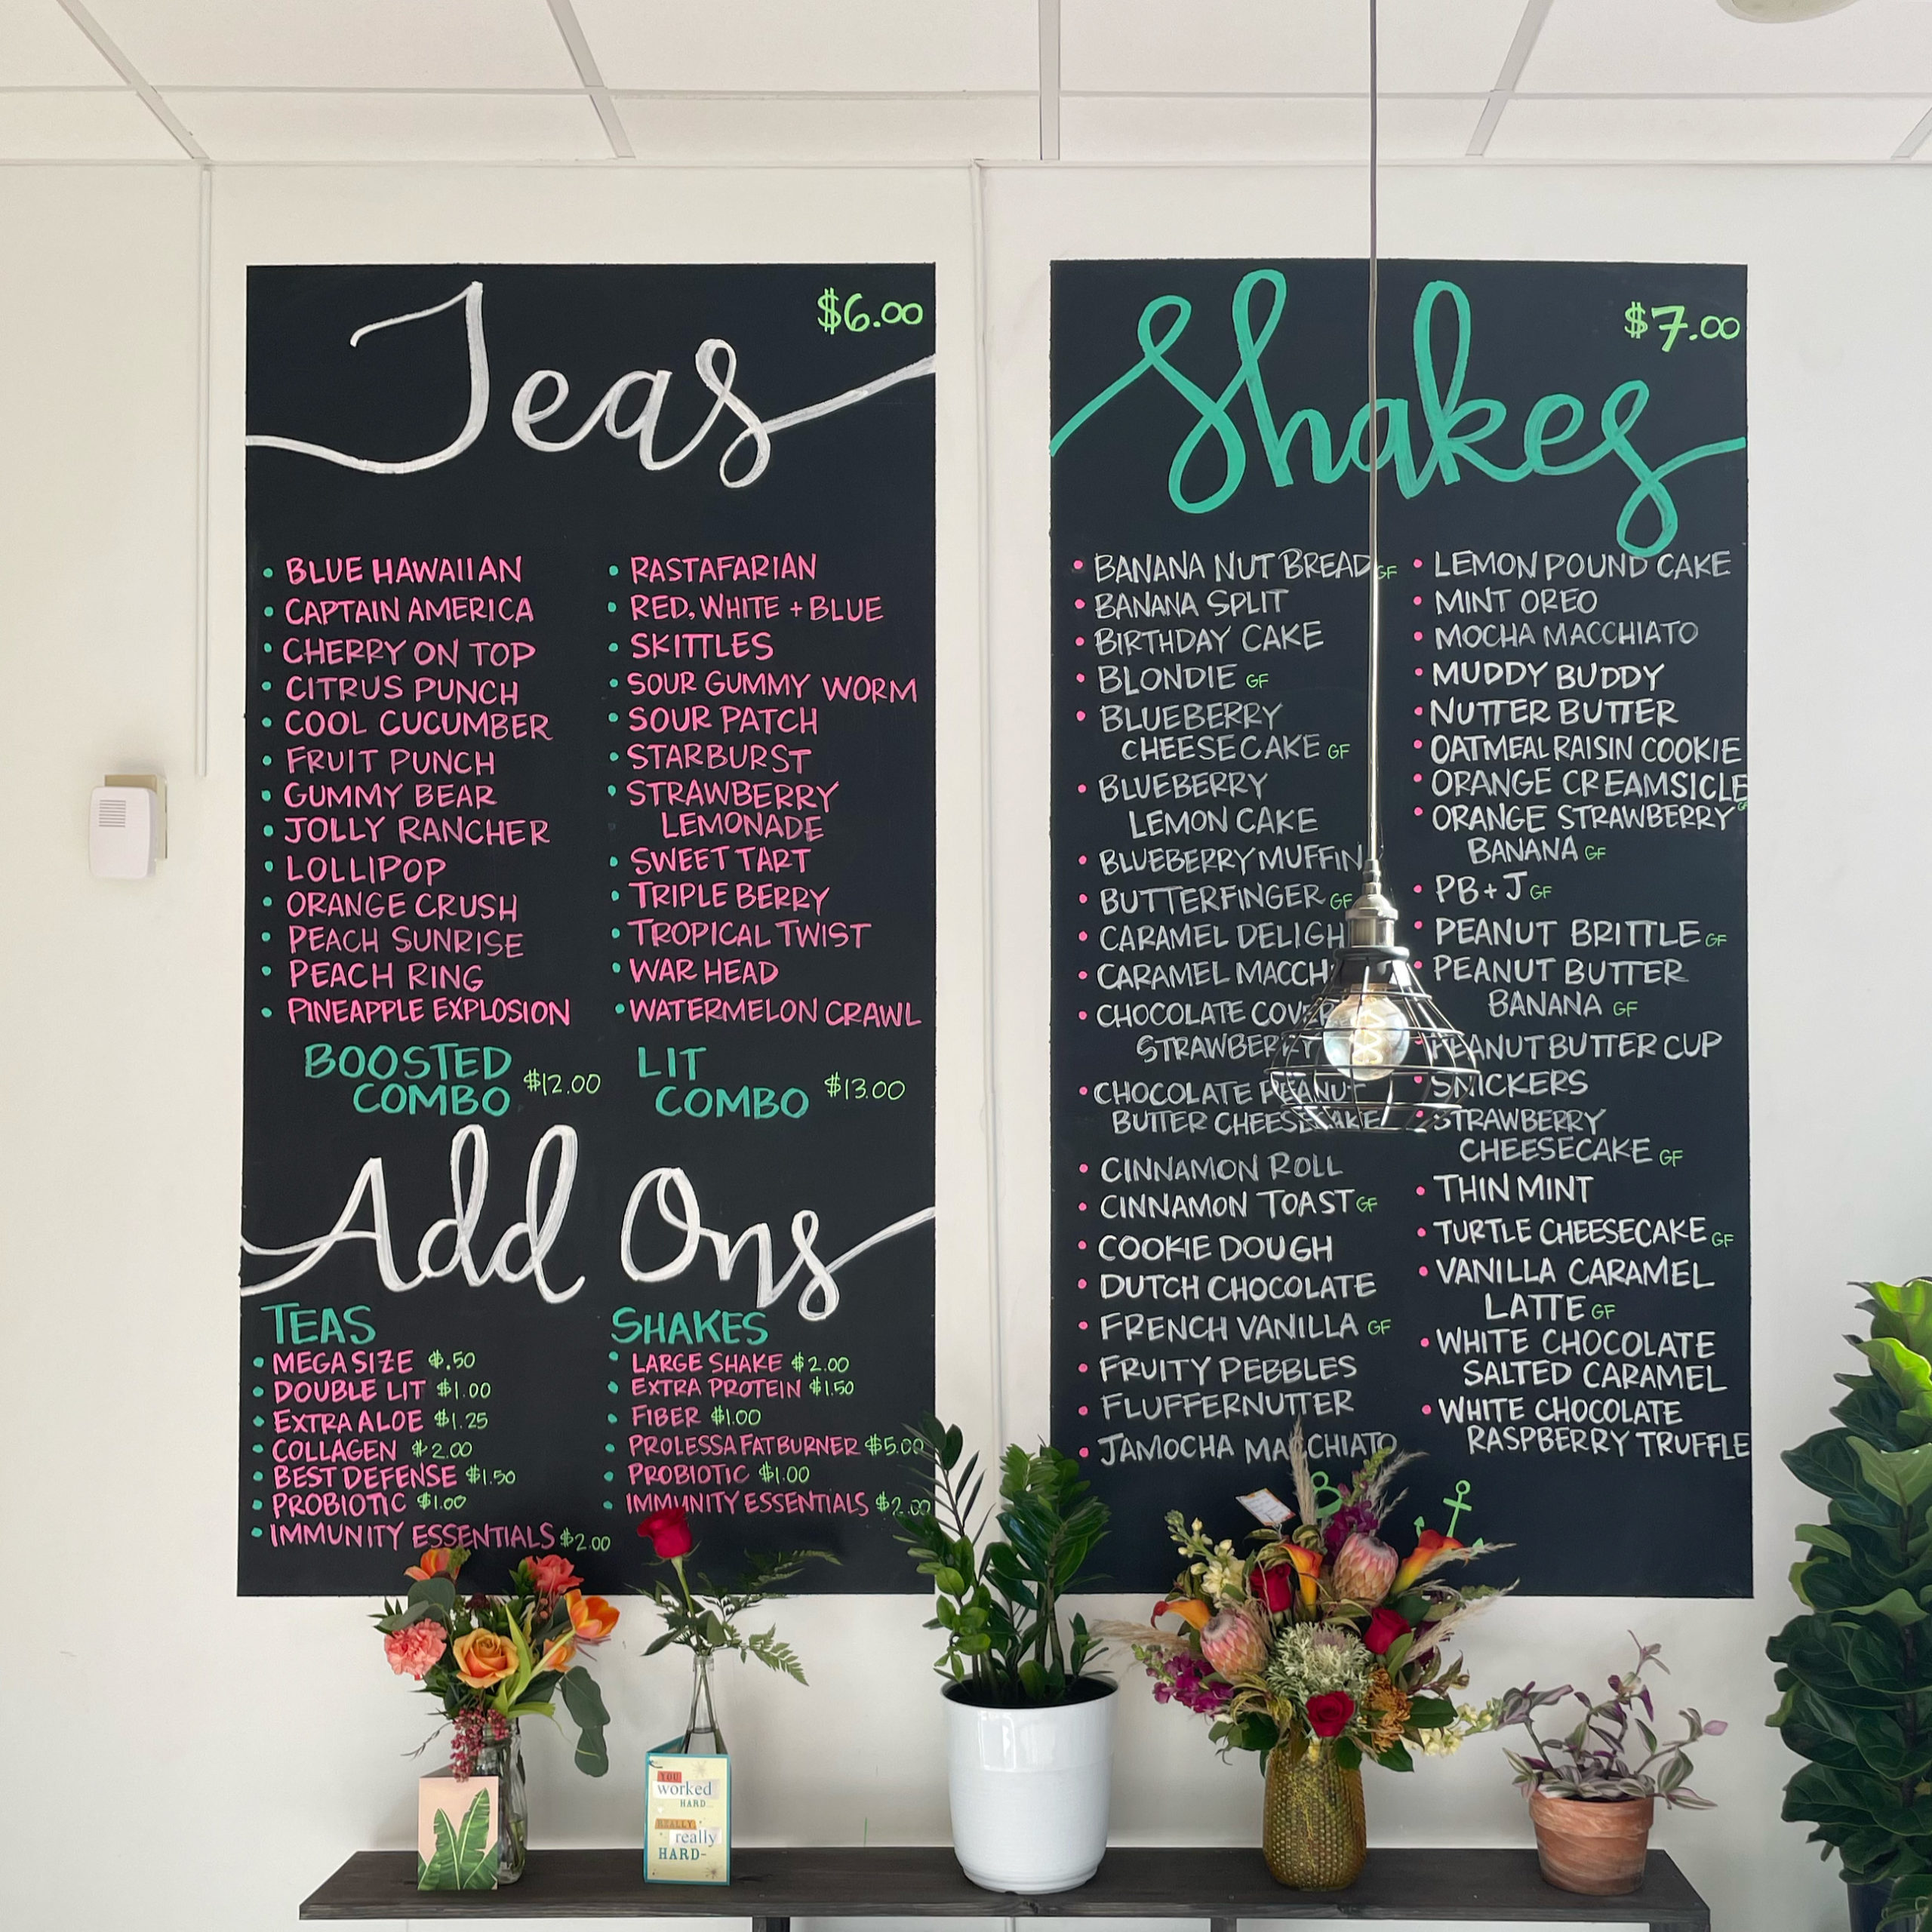 Teas
$6.00
• BLUE HAWAIIAN
• CAPTAIN AMERICA
• CHERRY ON TOP
• CITRUS PUNCH
• COOL CUCUMBER
• FRUIT PUNCH
• GUMMY BEAR
• JOLLY RANCHER
• LOLLIPOP
• ORANGE CRUSH
• PEACH SUNRISE
• PEACH RING
• PINEAPPLE EXPLOSION
• RASTAFARIAN
• RED, WHITE + BLUE
• SKITTLES
• SOUR GUMMY WORM
• SOUR PATCH
• STARBURST
• STRAWBERRY
LEMONADE
• SWEET TART
• TRIPLE BERRY
• TROPICAL TWIST
• WAR HEAD
• WATERMELON CRAWL
BOOSTED
COMBO $12.00
LIT
COMBO $13.00
Add Ons
TEAS
• MEGA SIZE $.50
• DOUBLE LIT $1.00
• EXTRA ALOE $1.25
• COLLAGEN $2.00
• BEST DEFENSE $1.50
• PROBIOTIC $1.00
• IMMUNITY ESSENTIALS $2.00
SHAKES
• LARGE SHAKE $2.00
• EXTRA PROTEIN $1.50
• FIBER $1.00
• PROLESSA FAT BURNER $5.00
• PROBIOTIC $1.00
• IMMUNITY ESSENTIALS $2.00
Shakes
$7.00
• BANANA NUT BREAD GF
• BANANA SPLIT
• BIRTHDAY CAKE
• BLONDIE GF
• BLUEBERRY
CHEESECAKE GF
• BLUEBERRY
LEMON CAKE
• BLUEBERRY MUFFIN
• BUTTERFINGER GF
• CARAMEL DELIGH
• CARAMEL MACCH
• CHOCOLATE COVER
STRAWBERRY
• CHOCOLATE PEANUT
BUTTER CHEESECAKE
• CINNAMON ROLL
• CINNAMON TOAST GF
• COOKIE DOUGH
• DUTCH CHOCOLATE
• FRENCH VANILLA GF
• FRUITY PEBBLES
• FLUFFERNUTTER
• JAMOCHA MACCHIATO
• LEMON POUND CAKE
• MINT OREO
• MOCHA MACCHIATO
• MUDDY BUDDY
• NUTTER BUTTER
• OATMEAL RAISIN COOKIE
• ORANGE CREAMSICLE GF
• ORANGE STRAWBERRY
BANANA GF
• PB + J GF
• PEANUT BRITTLE GF
• PEANUT BUTTER
BANANA GF
• PEANUT BUTTER CUP
• SNICKERS
• STRAWBERRY
CHEESECAKE GF
• THIN MINT
• TURTLE CHEESECAKE GF
• VANILLA CARAMEL
LATTE GF
• WHITE CHOCOLATE
SALTED CARAMEL
• WHITE CHOCOLATE
RASPBERRY TRUFFLE
YOU
worked
HARD...
REALLY,
really
HARD-